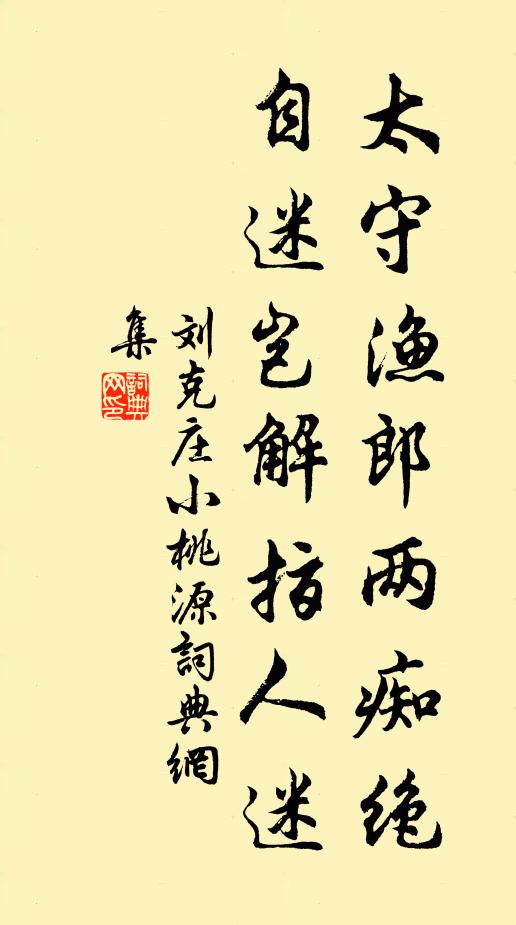 太守渔郎两痴绝
自迷岂解指人迷
刘克庄小桃源詞典網
集
詞典
网印